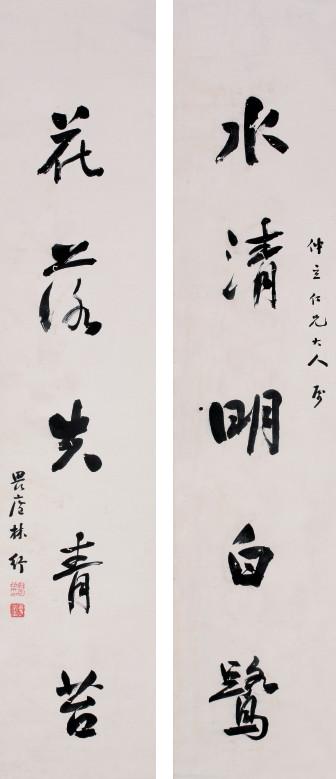 仲立仁兄大人屬
水清明白鷺
花落失青苔
畏廬林紓